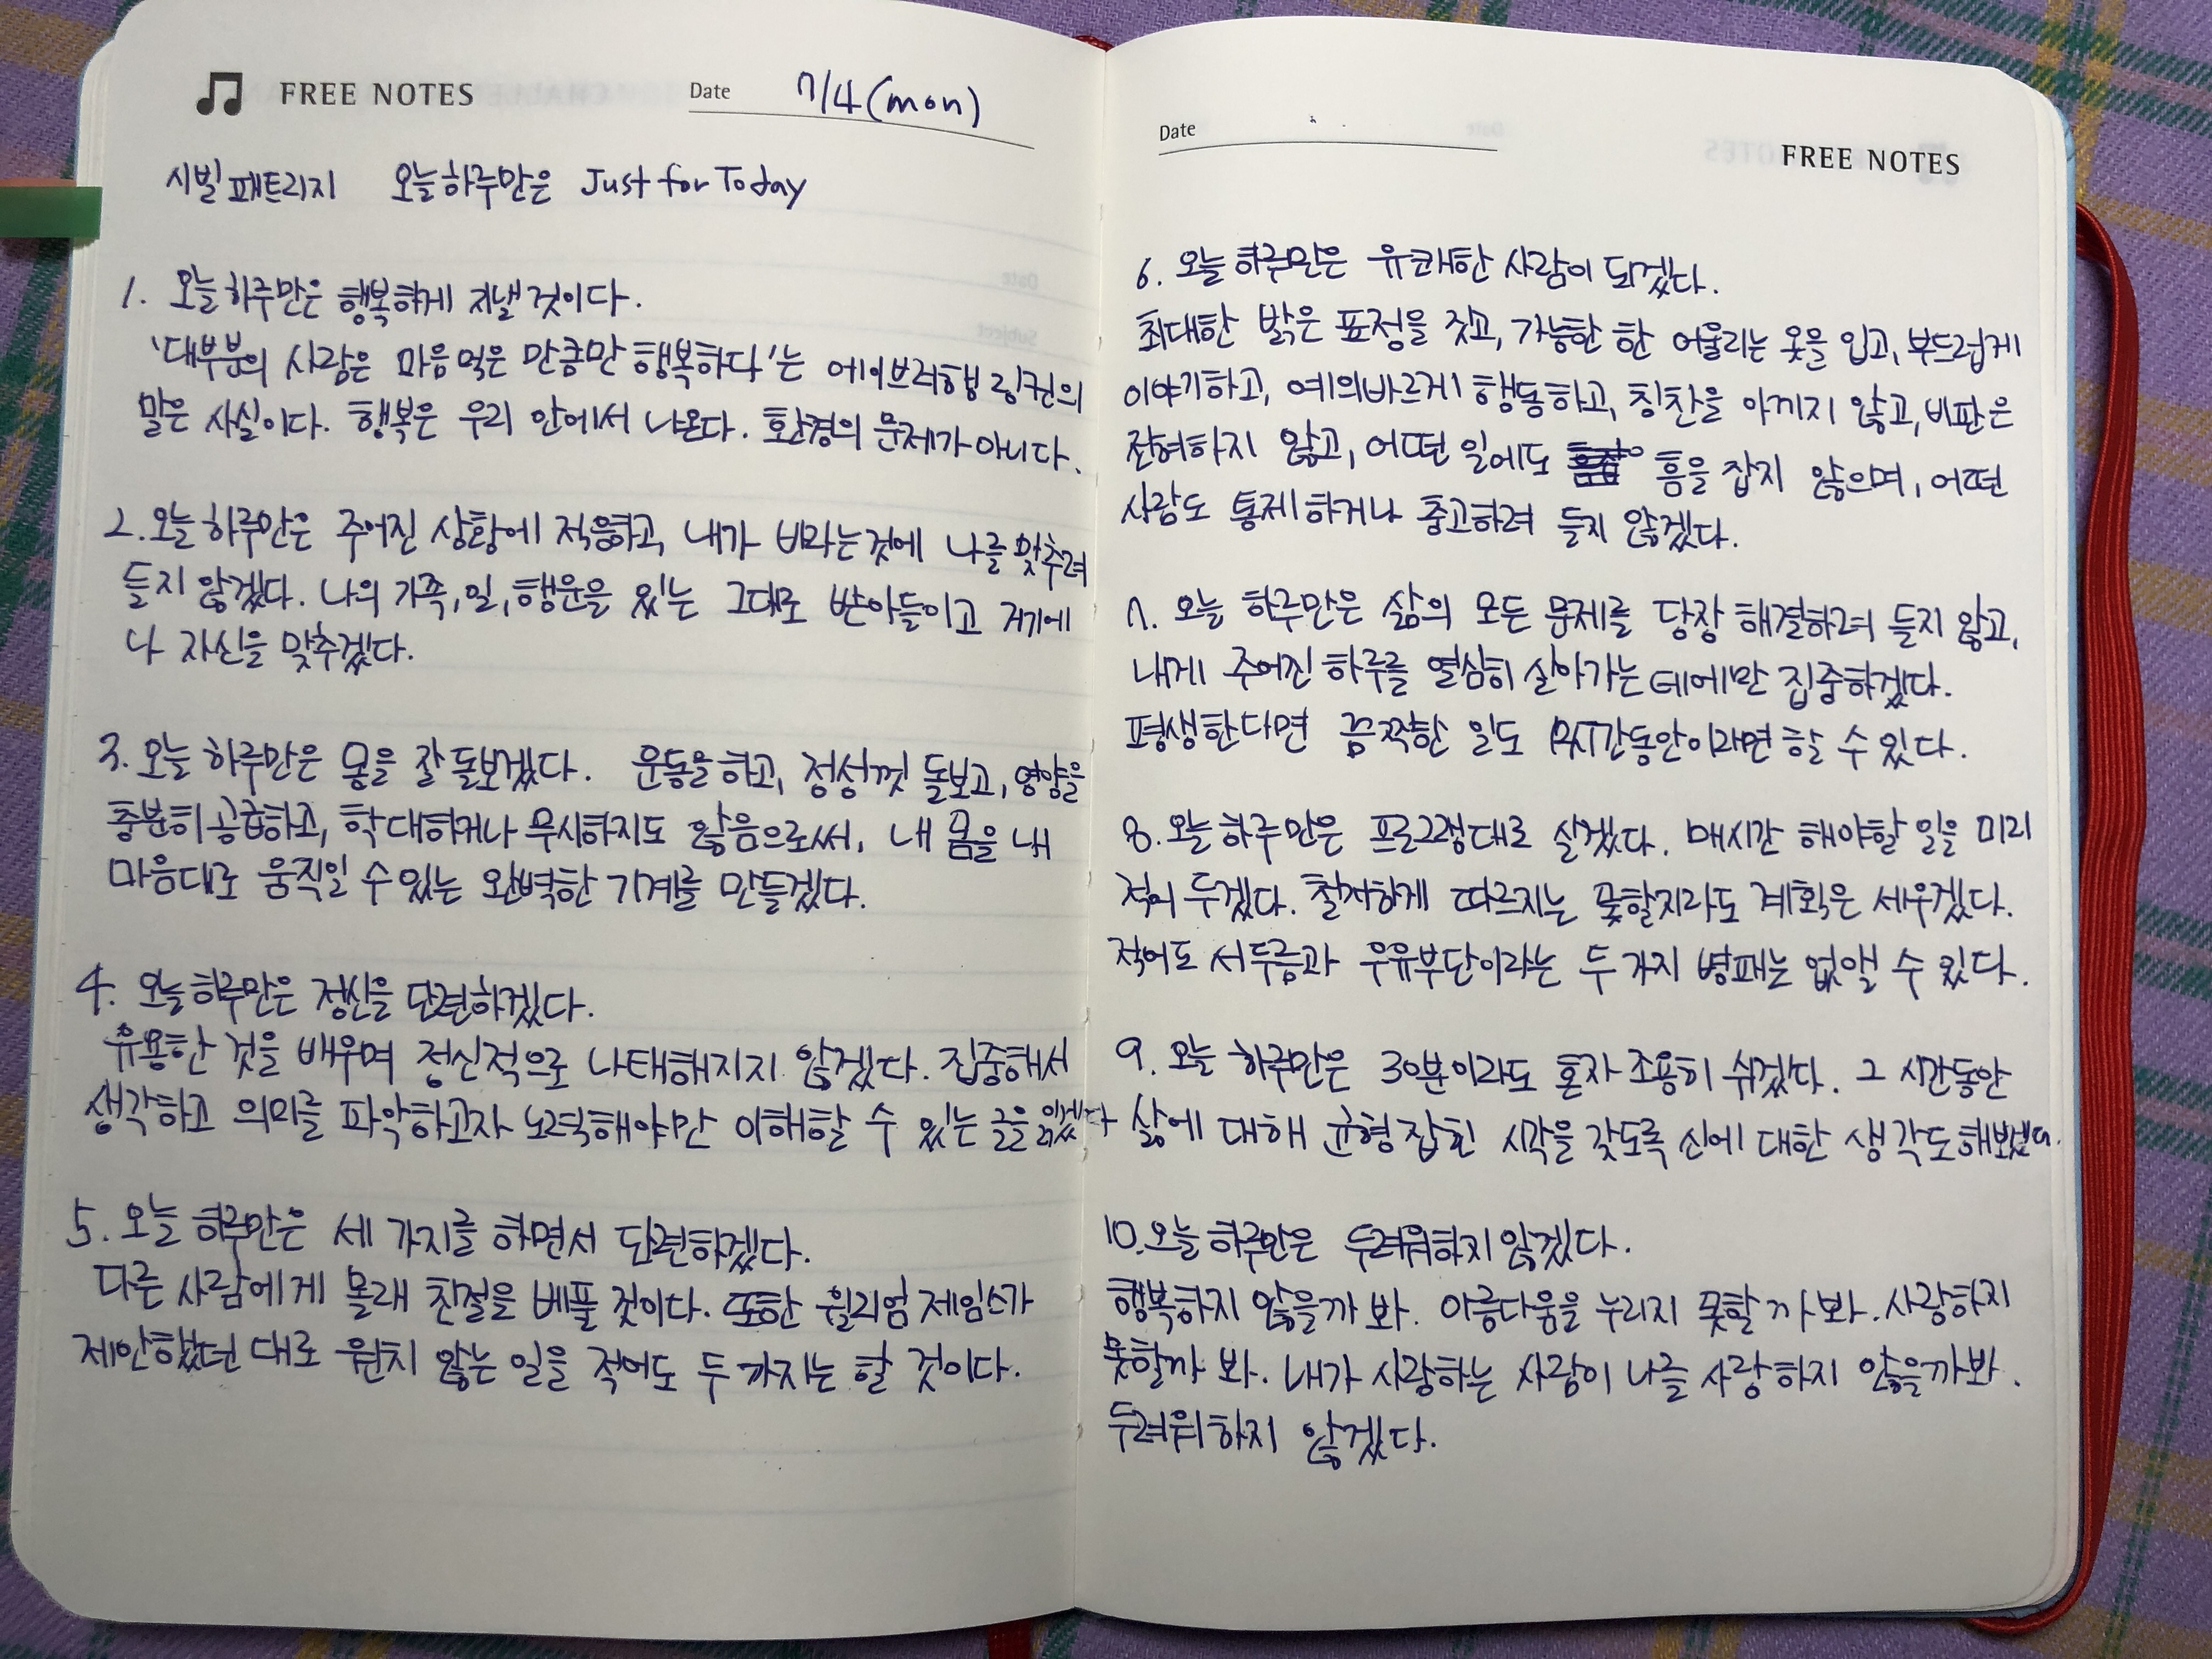 FREE NOTES Date 7/4(mon)
시빌 패트리지 오늘하루만은 Just for Today
1. 오늘 하루만은 행복하게 지낼 것이다.
'대부분의 사람은 마음먹은 만큼만 행복하다'는 에이브러햄 링컨의
말은 사실이다. 행복은 우리 안에서 나온다. 환경의 문제가 아니다.
2. 오늘 하루만은 주어진 상황에 적응하고, 내가 바라는 것에 나를 맞추려
들지 않겠다. 나의 가족, 일, 행운을 있는 그대로 받아들이고 거기에
나 자신을 맞추겠다.
3. 오늘 하루만은 몸을 잘 돌보겠다. 운동을 하고, 정성껏 돌보고, 영양을
충분히 공급하고, 학대하거나 무시하지도 않음으로써, 내 몸을 내
마음대로 움직일 수 있는 완벽한 기계를 만들겠다.
4. 오늘 하루만은 정신을 단련하겠다.
유용한 것을 배우며 정신적으로 나태해지지 않겠다. 집중해서
생각하고 의미를 파악하고자 노력해야만 이해할 수 있는 글을 읽겠다
5. 오늘 하루만은 세 가지를 하면서 단련하겠다.
다른 사람에게 몰래 친절을 베풀 것이다. 또한 윌리엄 제임스가
제안했던 대로 원치 않는 일을 적어도 두 가지는 할 것이다.
Date FREE NOTES
6. 오늘 하루만은 유쾌한 사람이 되겠다.
최대한 밝은 표정을 짓고, 가능한 한 어울리는 옷을 입고, 부드럽게
이야기하고, 예의바르게 행동하고, 칭찬을 아끼지 않고, 비판은
전혀하지 않고, 어떤 일에도 흠을 잡지 않으며, 어떤
사람도 통제하거나 충고하려 들지 않겠다.
7. 오늘 하루만은 삶의 모든 문제를 당장 해결하려 들지 않고,
내게 주어진 하루를 열심히 살아가는 데에만 집중하겠다.
평생한다면 끔찍한 일도 12시간동안이라면 할 수 있다.
8. 오늘 하루만은 프로그램대로 살겠다. 매시간 해야할 일을 미리
적어 두겠다. 철저하게 따르지는 못할지라도 계획은 세우겠다.
적어도 서두름과 우유부단이라는 두 가지 병패는 없앨 수 있다.
9. 오늘 하루만은 30분이라도 혼자 조용히 쉬겠다. 그 시간동안
삶에 대해 균형 잡힌 시각을 갖도록 신에 대한 생각도 해보겠다.
10. 오늘 하루만은 두려워하지 않겠다.
행복하지 않을까 봐. 아름다움을 누리지 못할까 봐. 사랑하지
못할까 봐. 내가 사랑하는 사람이 나를 사랑하지 않을까봐.
두려워하지 않겠다.